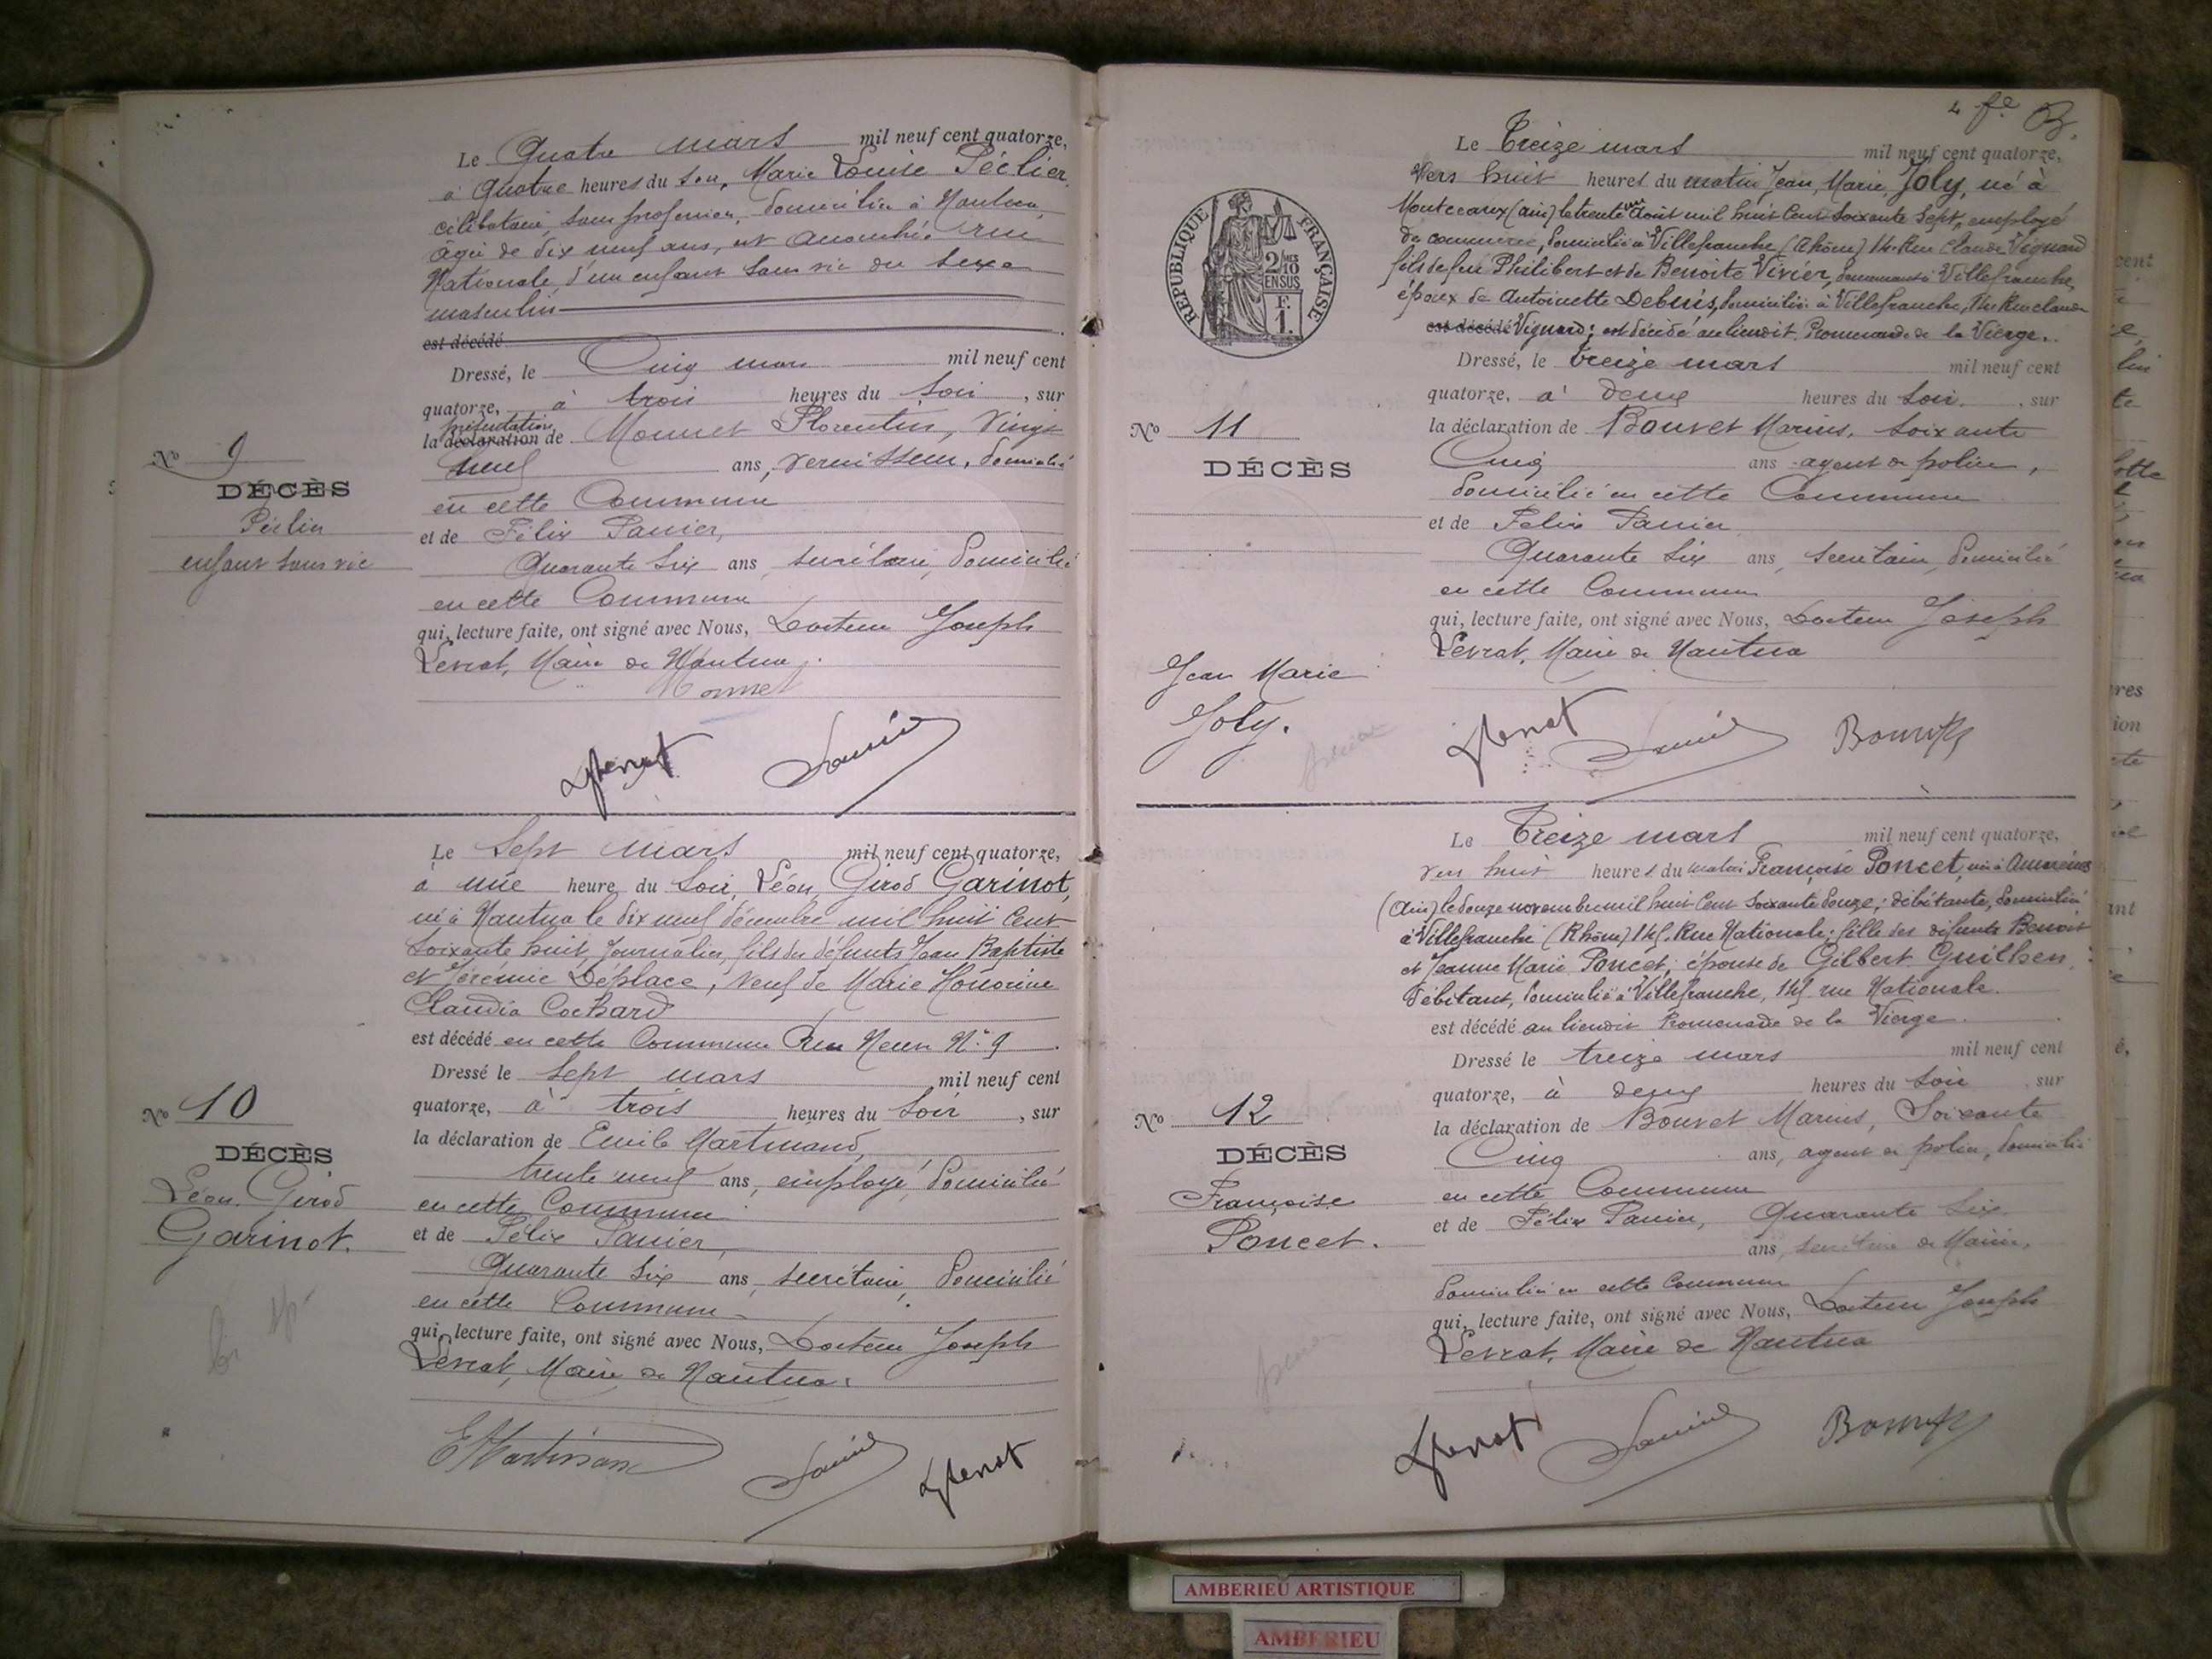 Le Quatre mars mil neuf cent quatorze,
à Quatre heures du soir, Marie Louise Péclier,
célibataire, sans profession, domiciliée à Nantua,
âgée de dix neuf ans, est accouchée rue
Nationale, d'un enfant sans vie du sexe
masculin
est décédé
Dressé, le Cinq mars mil neuf cent
quatorze, à trois heures du soir, sur
présentation
la déclaration de Monnet Florentin, Vingt
neuf ans, vernisseur, domicilié
en cette Commune
et de Félix Panier,
Quarante six ans, secrétaire, domicilié
en cette Commune
qui, lecture faite, ont signé avec Nous, Docteur Joseph
Levrat, Maire de Nantua.
Monnet
Levrat Panier
No 9
DÉCÈS
Péclier
enfant sans vie
Le Sept mars mil neuf cent quatorze,
à une heure du soir, Léon Girod Garinot,
né à Nantua le dix neuf décembre mil huit cent
soixante huit, journalier, fils des défunts Jean Baptiste
et Jérémie Déplace, veuf de Marie Honorine
Claudia Cochard
est décédé en cette Commune Rue Neuve No 9
Dressé le Sept mars mil neuf cent
quatorze, à trois heures du soir, sur
la déclaration de Emile Hartmann,
trente neuf ans, employé, domicilié
en cette Commune
et de Félix Panier,
Quarante six ans, secrétaire, domicilié
en cette Commune
qui, lecture faite, ont signé avec Nous, Docteur Joseph
Levrat, Maire de Nantua.
EHartmann Panier Levrat
No 10
DÉCÈS
Léon Girod
Garinot.
Le Treize mars mil neuf cent quatorze,
Vers huit heures du matin Jean, Marie, Joly, né à
Montceaux (ain) le trente un Août mil huit cent soixante sept, employé
de commerce, domicilié à Villefranche (Rhône) 14 Rue Claude Vignard
fils de feu Philibert et de Benoite Vivier, demeurant à Villefranche,
époux de Antoinette Debuis, domiciliée à Villefranche, 14 Rue Claude
est décédé Vignard; est décédé au lieudit Promenade de la Vierge.
Dressé, le treize mars mil neuf cent
quatorze, à deux heures du soir, sur
la déclaration de Bouvet Marius, soixante
Cinq ans agent de police,
domicilié en cette Commune
et de Félix Panier
Quarante six ans, secrétaire, domicilié
en cette Commune
qui, lecture faite, ont signé avec Nous, Docteur Joseph
Levrat, Maire de Nantua
Levrat Panier Bouvet
RÉPUBLIQUE FRANÇAISE
2/10 EN SUS
F.
1.
No 11
DÉCÈS
Jean Marie
Joly.
Le Treize mars mil neuf cent quatorze,
vers huit heures du matin Françoise Poncet, née à Amareins
(Ain) le douze novembre mil huit cent soixante douze; débitante, domiciliée
à Villefranche (Rhône) Rue Nationale; fille des défunts Benoit
et Jeanne Marie Poncet; épouse de Gilbert Guilhen,
débitant, domicilié à Villefranche, rue Nationale.
est décédé au lieudit Promenade de la Vierge.
Dressé le treize mars mil neuf cent
quatorze, à deux heures du soir sur
la déclaration de Bouvet Marius, Soixante
Cinq ans, agent de police, domicilié
en cette Commune
et de Félix Panier, Quarante six
ans, secrétaire de Mairie,
domicilié en cette Commune
qui, lecture faite, ont signé avec Nous, Docteur Joseph
Levrat, Maire de Nantua
Levrat Panier Bouvet
No 12
DÉCÈS
Françoise
Poncet.
AMBERIEU ARTISTIQUE
AMBERIEU